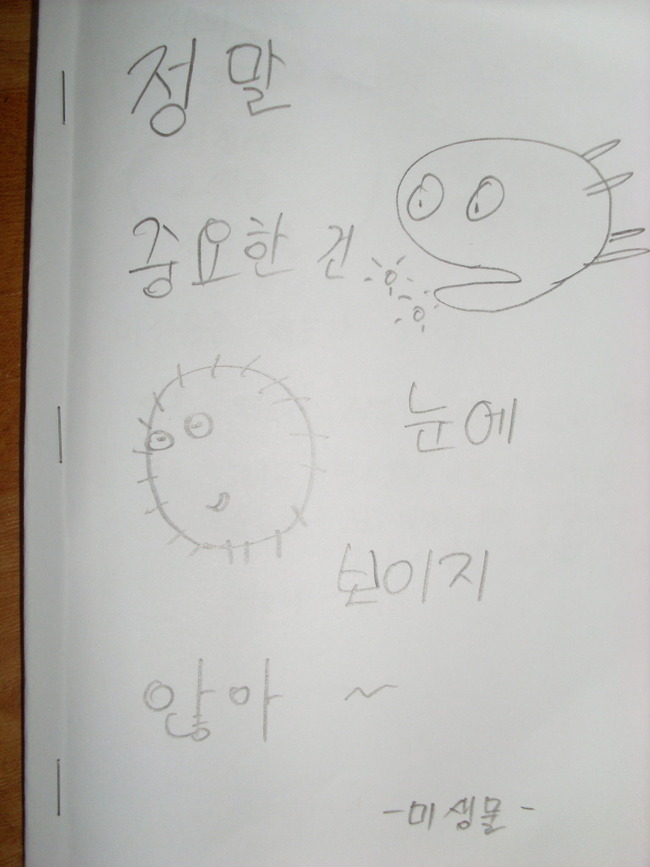 정말
중요한 건
눈에
보이지
않아 ~
-미생물-